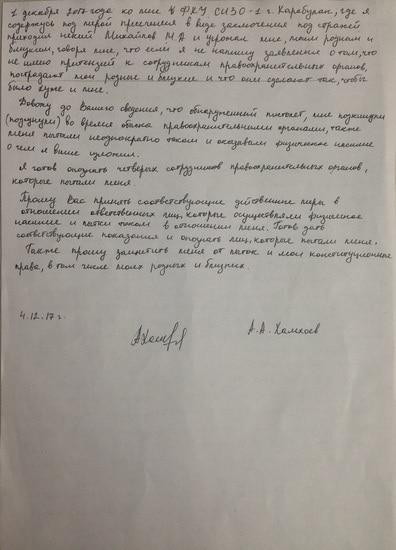 1 декабря 2017 года ко мне в ФКУ СИЗО-1 г. Карабулак, где я
содержусь под мерой пресечения в виде заключения под стражей
приходил некий Михайлов М.А и угрожал мне, моим родным и
близким, говоря мне, что если я не напишу заявление о том, что
не имею претензий к сотрудникам правоохранительных органов,
пострадают мои родные и близкие и что они сделают так, чтобы
было хуже и мне.
Довожу до Вашего сведения, что обнаруженный пистолет, мне подкинули
(подсунули) во время обыска правоохранительными органами, также
меня пытали неоднократно током и оказывали физическое насилие
о чем я выше изложил.
Я готов опознать четверых сотрудников правоохранительных органов,
которые пытали меня.
Прошу Вас принять соответствующие действенные меры в
отношении ответственных лиц, которые осуществляли физическое
насилие и пытки током в отношении меня. Готов дать
соответствующие показания и опознать лиц, которые пытали меня.
Также прошу защитить меня от пыток и мои конституционные
права, в том числе моих родных и близких.
4.12.17 г.
А.А. Хамхоев